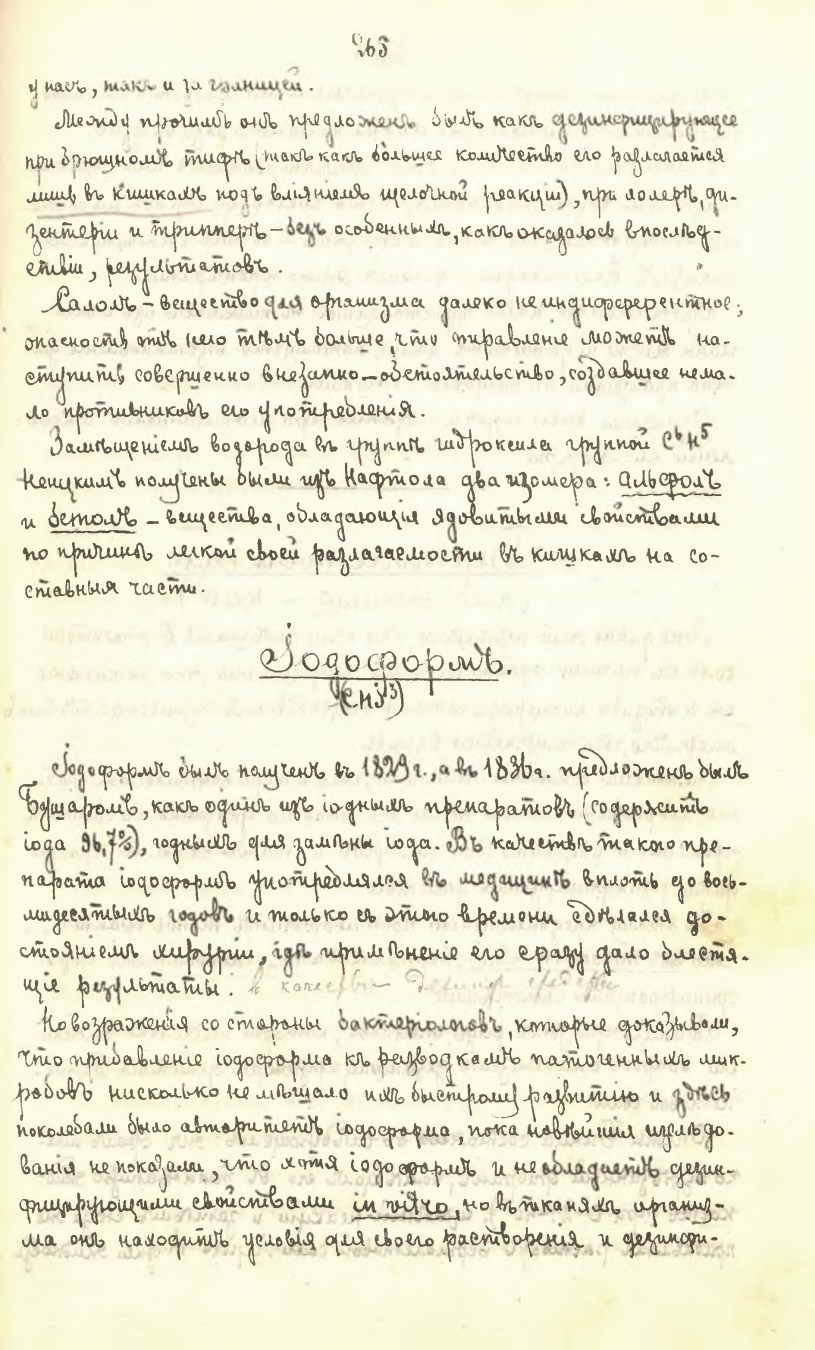 265
у насъ, такъ и за границей.
Между прочимъ онъ предложенъ былъ какъ дезинфицирующее
при брюшномъ тифѣ (такъ какъ большее количество его разлагается
лишь въ кишкахъ подъ вліяніемъ щелочной реакціи), при холерѣ, ди-
зентеріи и трипперѣ – безъ особенныхъ, какъ оказалось впослѣд-
ствіи, результатовъ.
Салолъ – вещество для организма далеко не индифферентное;
опасность отъ него тѣмъ больше, что отравленіе можетъ на-
ступить совершенно внезапно – обстоятельство, создавшее нема-
ло противниковъ его употребленія.
Замѣщеніемъ водорода въ группѣ гидроксила группой C⁶H⁵
Ненцкимъ получены были изъ Нафтола два изомера: альфолъ
и бетолъ – вещества, обладающія ядовитыми свойствами
по причинѣ легкой своей разлагаемости въ кишкахъ на со-
ставныя части.
Іодоформъ.
(CHI³)
Іодоформъ былъ полученъ въ 1829 г., а въ 1836 г. предложенъ былъ
Бушаромъ, какъ одинъ изъ іодныхъ препаратовъ (содержитъ
іода 96,7%), годныхъ для замѣны іода. Въ качествѣ такого пре-
парата іодоформъ употреблялся въ медицинѣ вплоть до вось-
мидесятыхъ годовъ и только съ этого времени сдѣлался до-
стояніемъ хирургіи, гдѣ примѣненіе его сразу дало блестя-
щіе результаты. въ качествѣ
Но возраженія со стороны бактеріологовъ, которые доказывали,
что прибавленіе іодоформа къ разводкамъ патогенныхъ мик-
робовъ нисколько не мѣшало ихъ быстрому развитію и здѣсь
поколебали было авторитетъ іодоформа, пока новѣйшія изслѣдо-
ванія не показали, что хотя іодоформъ и не обладаетъ дезин-
фицирующими свойствами in vitro, но въ тканяхъ организ-
ма онъ находитъ условія для своего растворенія и дезинфи-